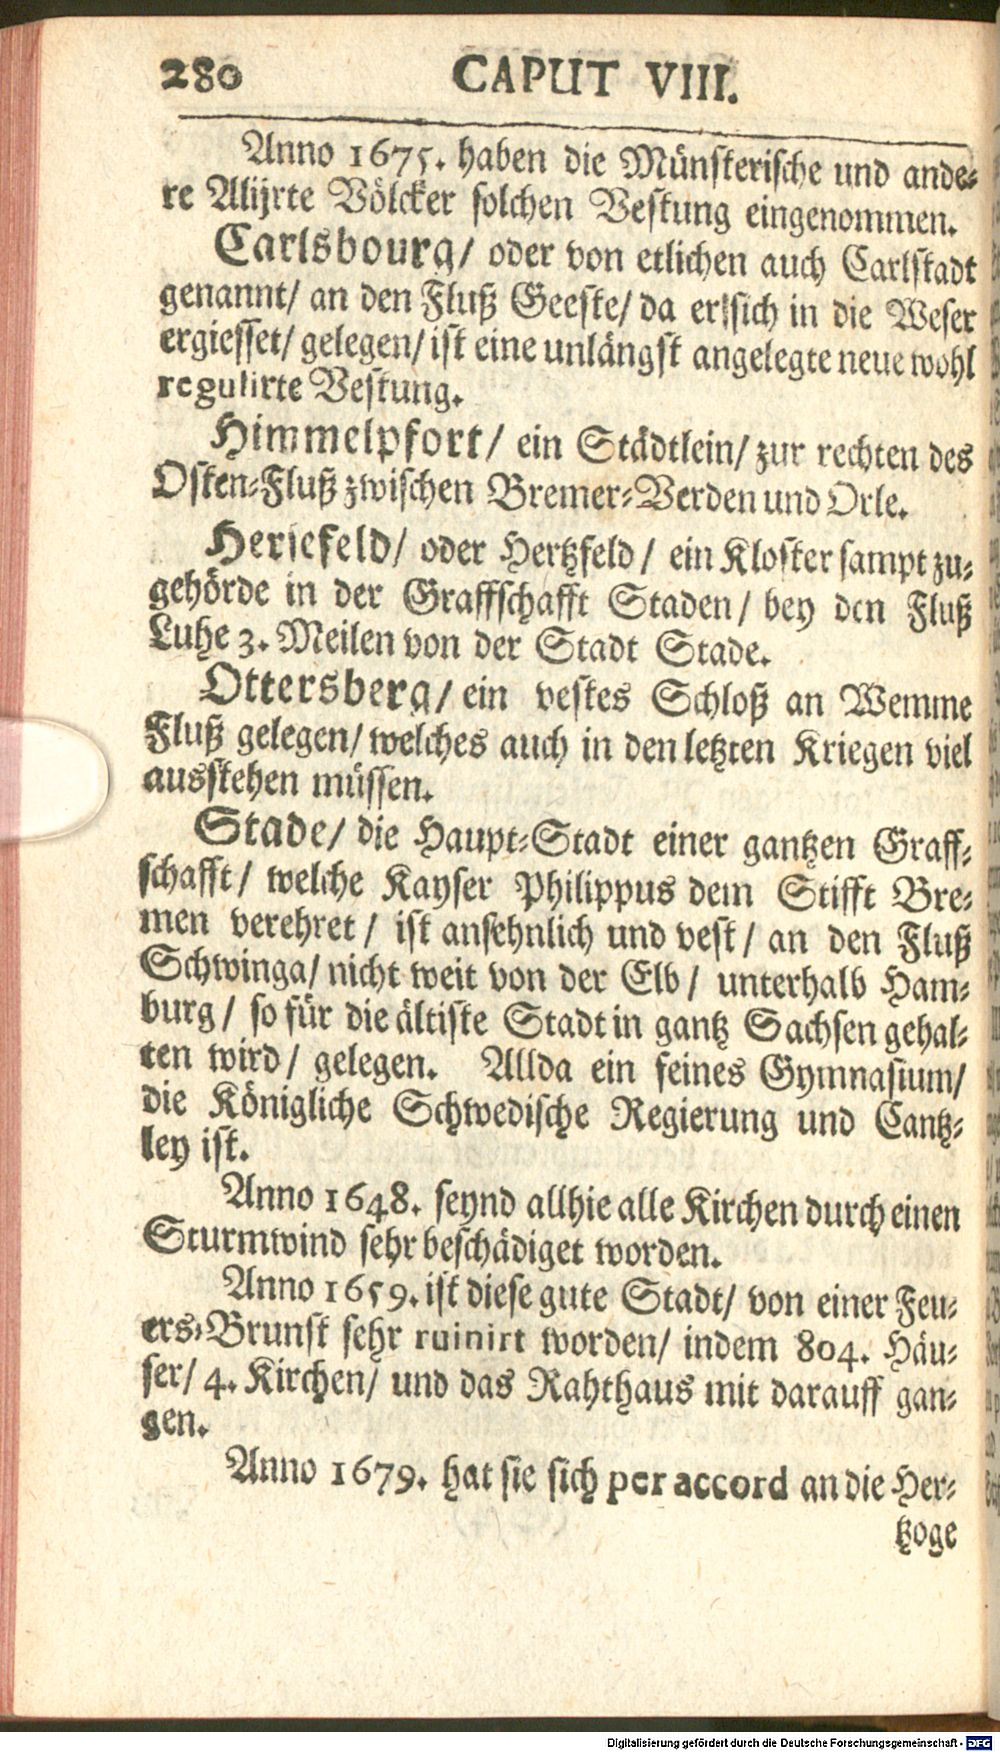 280 CAPUT VIII.
Anno 1675. haben die Münsterische und ande-
re Alijrte Völcker solchen Vestung eingenommen.
Carlsbourg/ oder von etlichen auch Carlstadt
genannt/ an den Fluß Geeste/ da er sich in die Weser
ergiesset/ gelegen/ ist eine unlängst angelegte neue wohl
regulirte Vestung.
Himmelpfort/ ein Städtlein/ zur rechten des
Osten-Fluß zwischen Bremer-Verden und Orle.
Hersefeld/ oder Hertzfeld/ ein Kloster sampt zu-
gehörde in der Graffschafft Staden/ bey den Fluß
Luhe 3. Meilen von der Stadt Stade.
Ottersberg/ ein vestes Schloß an Wemme
Fluß gelegen/ welches auch in den letzten Kriegen viel
ausstehen müssen.
Stade/ die Haupt-Stadt einer gantzen Graff-
schafft/ welche Kayser Philippus dem Stifft Bre-
men verehret/ ist ansehnlich und vest/ an den Fluß
Schwinga/ nicht weit von der Elb/ unterhalb Ham-
burg/ so für die ältiste Stadt in gantz Sachsen gehal-
ten wird/ gelegen. Allda ein feines Gymnasium/
die Königliche Schwedische Regierung und Cantz-
ley ist.
Anno 1648. seynd allhie alle Kirchen durch einen
Sturmwind sehr beschädiget worden.
Anno 1659. ist diese gute Stadt/ von einer Feu-
ers-Brunst sehr ruinirt worden/ indem 804. Häu-
ser/ 4. Kirchen/ und das Rahthaus mit darauff gan-
gen.
Anno 1679. hat sie sich per accord an die Her-
tzoge
Digitalisierung gefördert durch die Deutsche Forschungsgemeinschaft - DFG